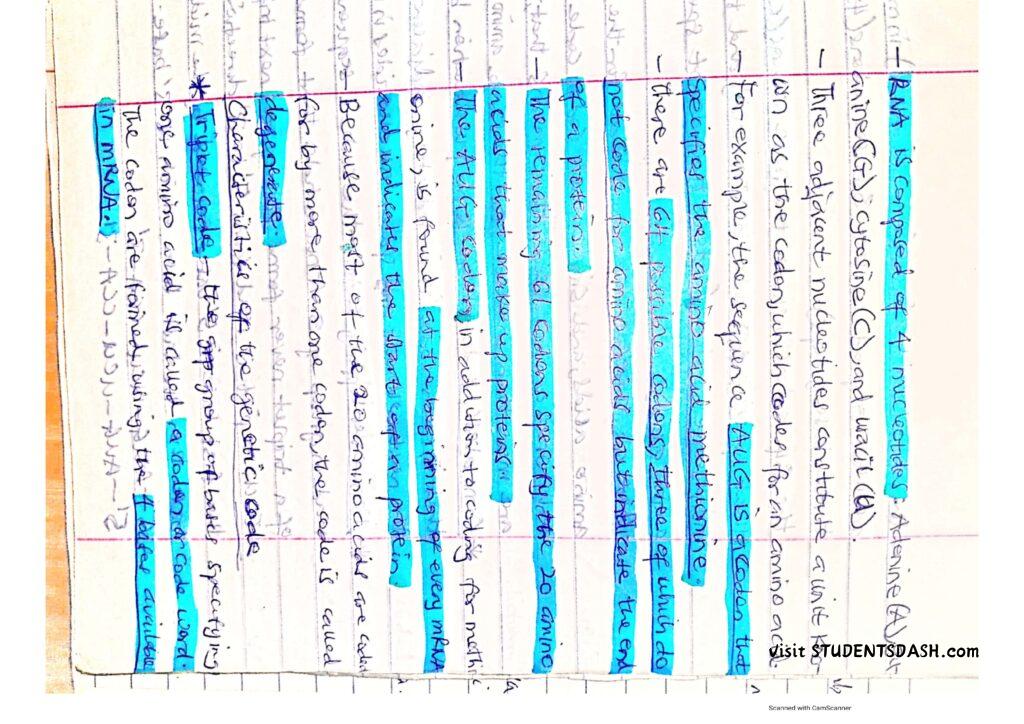 – RNA is composed of 4 nucleotides:- Adenine (A),
anine (G), cytosine (C), and uracil (U).
– Three adjacent nucleotides constitute a unit
wn as the codon, which codes for an amino acid.
– For example, the sequence AUG is a codon that
specifies the amino acid methionine.
– there are 64 possible codons, three of which do
not code for amino acids but indicate the end
of a protein.
– The remaining 61 codons specify the 20 amino
acids that make up proteins
– The AUG codon, in addition to coding for methi
onine, is found at the beginning of every mRNA
and indicates the start of a protein
– Because most of the 20 amino acids are coded
for by more than one codon, the code is called
degenerate.
Characteristics of the genetic code
* Triplet code – the group of bases specifying
one amino acid is called a codon or code word.
The codon are formed using the 4 bases available
in mRNA.
visit STUDENTSDASH.com
Scanned with CamScanner